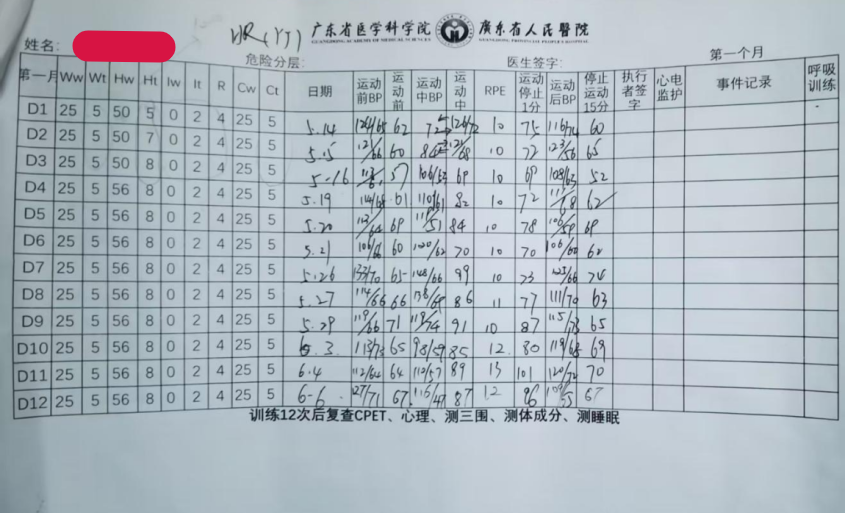 HR (YJ) 广东省医学科学院 廣東省人民醫院
GUANGDONG ACADEMY OF MEDICAL SCIENCES GUANGDONG PROVINCIAL PEOPLE'S HOSPITAL
姓名: 危险分层: 医生签字: 第一个月
第一月 Ww Wt Hw Ht Iw It R Cw Ct 日期 运动前BP 运动前 运动中BP 运动中 RPE 运动停止1分 运动后BP 停止运动15分 执行者签字 心电监护 事件记录 呼吸训练
D1 25 5 50 5 0 2 4 25 5 5.14 124/65 62 72 126/72 10 75 116/74 60 -
D2 25 5 50 7 0 2 4 25 5 5.15 121/66 60 84 10 72 123/56 65
D3 25 5 50 8 0 2 4 25 5 5.16 57 106/63 69 10 69 108/63 52
D4 25 5 56 8 0 2 4 25 5 5.19 114/68 61 110/61 82 10 72 62
D5 25 5 56 8 0 2 4 25 5 5.20 69 84 10 78 69
D6 25 5 56 8 0 2 4 25 5 5.21 60 120/62 70 10 70 106/60 62
D7 25 5 56 8 0 2 4 25 5 5.26 133/70 65 148/66 99 10 73 123/66 74
D8 25 5 56 8 0 2 4 25 5 5.27 114/66 66 136/69 86 11 77 111/70 63
D9 25 5 56 8 0 2 4 25 5 5.29 119/66 71 119/74 91 10 87 115/73 65
D10 25 5 56 8 0 2 4 25 5 6.3 113/73 65 98/59 85 12 80 119/68 69
D11 25 5 56 8 0 2 4 25 5 6.4 112/64 64 112/57 89 13 101 120/72 70
D12 25 5 56 8 0 2 4 25 5 6-6 127/71 67 116/47 87 12 96 67
训练12次后复查CPET、心理、测三围、测体成分、测睡眠